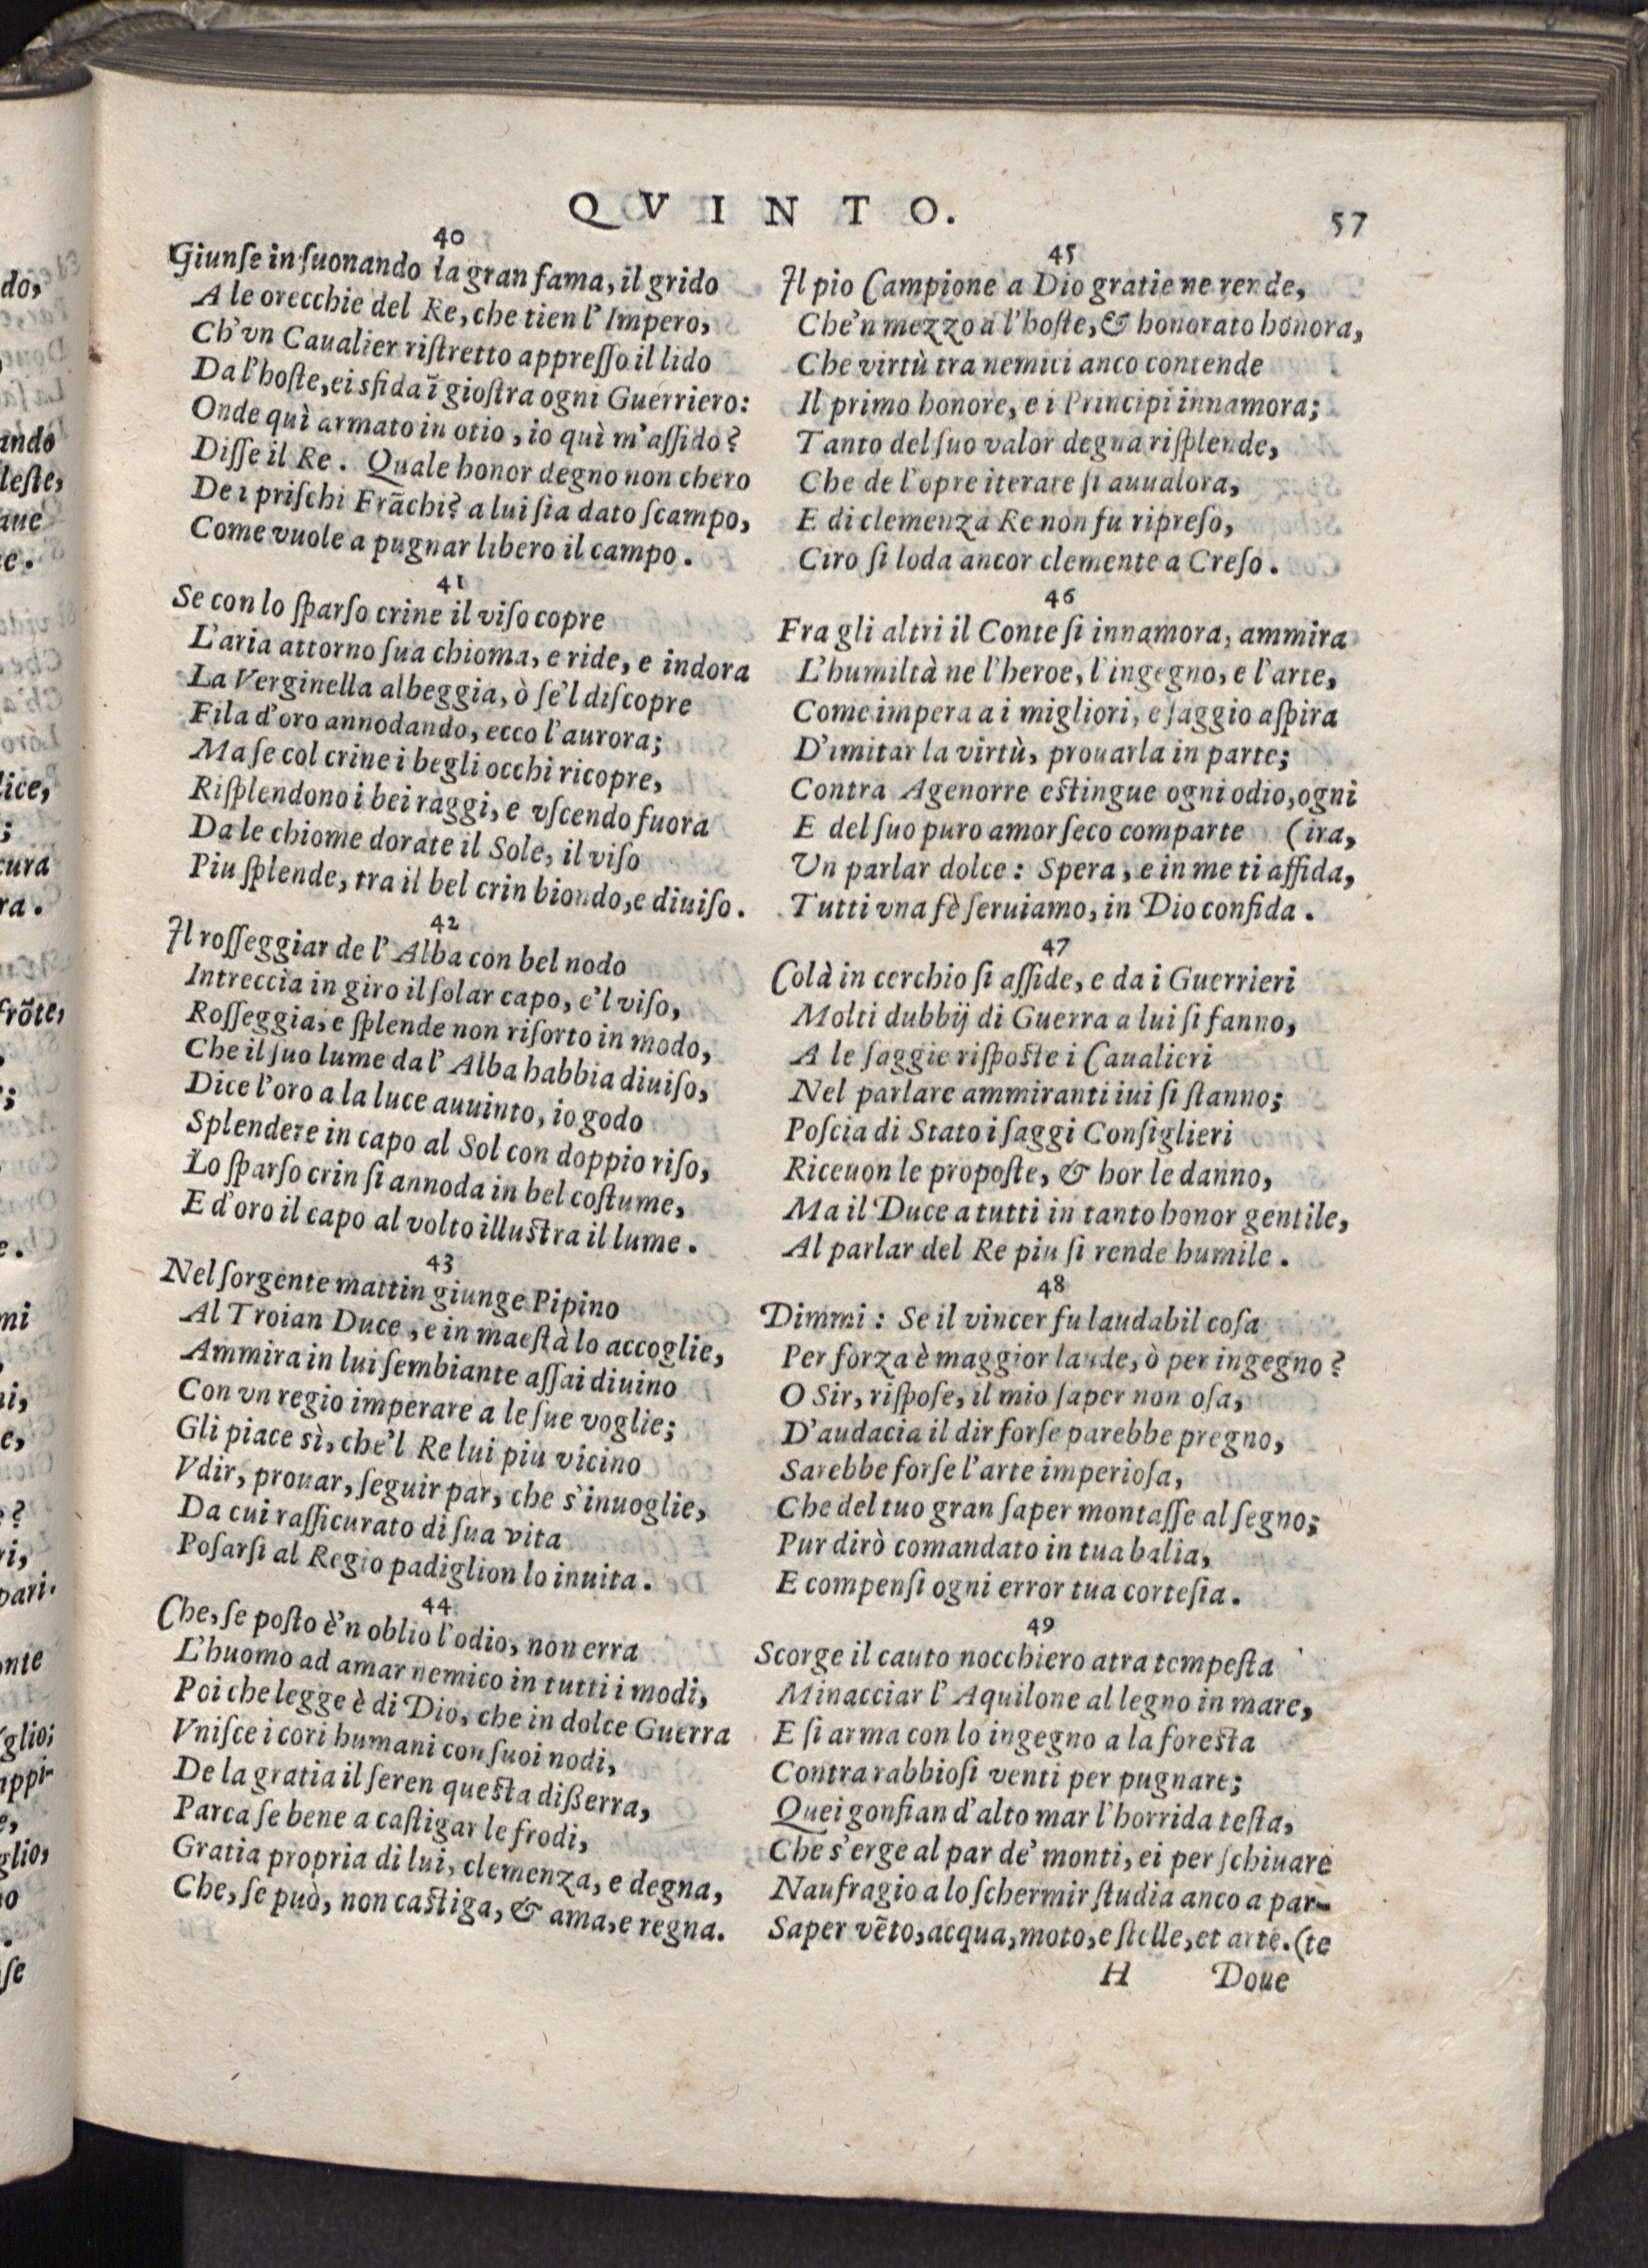 QVINTO.
57
40
Giunſe in ſuonando la gran fama, il grido
A le orecchie del Re, che tien l'Impero,
Ch'vn Caualier riſtretto appreſſo il lido
Da l'hoſte, ei sfida ĩ gioſtra ogni Guerriero:
Onde quì armato in otio, io quì m'aſſido?
Diſſe il Re. Quale honor degno non chero
De i priſchi Frãchi? a lui ſia dato ſcampo,
Come vuole a pugnar libero il campo.
41
Se con lo ſparſo crine il viſo copre
L'aria attorno ſua chioma, e ride, e indora
La Verginella albeggia, ò ſe'l diſcopre
Fila d'oro annodando, ecco l'aurora;
Ma ſe col crine i begli occhi ricopre,
Riſplendono i bei raggi, e vſcendo fuora
Da le chiome dorate il Sole, il viſo
Piu ſplende, tra il bel crin biondo, e diuiſo.
42
Il roſſeggiar de l'Alba con bel nodo
Intreccia in giro il ſolar capo, e'l viſo,
Roſſeggia, e ſplende non riſorto in modo,
Che il ſuo lume da l'Alba habbia diuiſo,
Dice l'oro a la luce auuinto, io godo
Splendere in capo al Sol con doppio riſo,
Lo ſparſo crin ſi annoda in bel coſtume,
E d'oro il capo al volto illuſtra il lume.
43
Nel ſorgente mattin giunge Pipino
Al Troian Duce, e in maeſtà lo accoglie,
Ammira in lui ſembiante aſſai diuino
Con vn regio imperare a le ſue voglie;
Gli piace sì, che'l Re lui piu vicino
Vdir, prouar, ſeguir par, che s'inuoglie,
Da cui raſſicurato di ſua vita
Poſarſi al Regio padiglion lo inuita.
44
Che, ſe poſto è'n oblio l'odio, non erra
L'huomo ad amar nemico in tutti i modi,
Poi che legge è di Dio, che in dolce Guerra
Vniſce i cori humani con ſuoi nodi,
De la gratia il ſeren queſta dißerra,
Parca ſe bene a caſtigar le frodi,
Gratia propria di lui, clemenza, e degna,
Che, ſe può, non caſtiga, & ama, e regna.
45
Il pio Campione a Dio gratie ne rende,
Che'n mezzo a l'hoſte, & honorato honora,
Che virtù tra nemici anco contende
Il primo honore, e i Principi innamora;
Tanto del ſuo valor degna riſplende,
Che de l'opre iterare ſi auualora,
E di clemenza Re non fu ripreſo,
Ciro ſi loda ancor clemente a Creſo.
46
Fra gli altri il Conte ſi innamora, ammira
L'humiltà ne l'heroe, l'ingegno, e l'arte,
Come impera a i migliori, e ſaggio aſpira
D'imitar la virtù, prouarla in parte;
Contra Agenorre eſtingue ogni odio, ogni
E del ſuo puro amor ſeco comparte (ira,
Un parlar dolce: Spera, e in me ti affida,
Tutti vna fè ſeruiamo, in Dio confida.
47
Colà in cerchio ſi aſſide, e da i Guerrieri
Molti dubbij di Guerra a lui ſi fanno,
A le ſaggie riſpoſte i Caualieri
Nel parlare ammiranti iui ſi ſtanno;
Poſcia di Stato i ſaggi Conſiglieri
Riceuon le propoſte, & hor le danno,
Ma il Duce a tutti in tanto honor gentile,
Al parlar del Re piu ſi rende humile.
48
Dimmi: Se il vincer fu laudabil coſa
Per forza è maggior laude, ò per ingegno?
O Sir, riſpoſe, il mio ſaper non oſa,
D'audacia il dir forſe parebbe pregno,
Sarebbe forſe l'arte imperioſa,
Che del tuo gran ſaper montaſſe al ſegno;
Pur dirò comandato in tua balia,
E compenſi ogni error tua corteſia.
49
Scorge il cauto nocchiero atra tempeſta
Minacciar l'Aquilone al legno in mare,
E ſi arma con lo ingegno a la foreſta
Contra rabbioſi venti per pugnare;
Quei gonfian d'alto mar l'horrida teſta,
Che s'erge al par de' monti, ei per ſchiuare
Naufragio a lo ſchermir ſtudia anco a par-
Saper vẽto, acqua, moto, e ſtelle, et arte. (te
H Doue